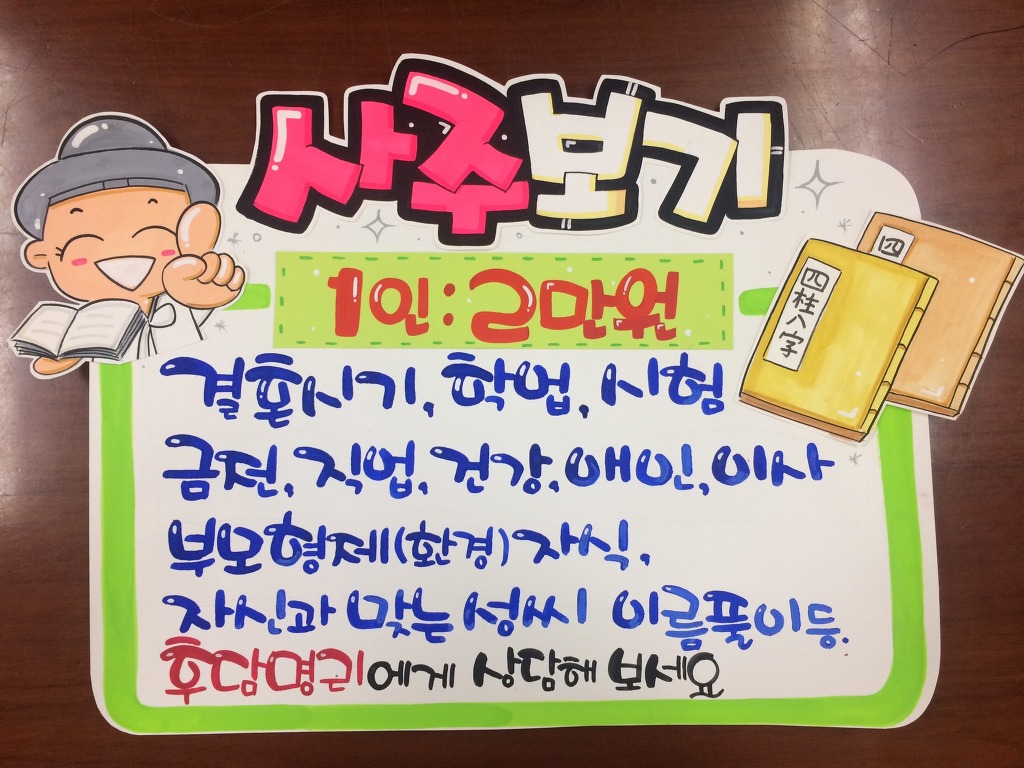 사주보기
1인:2만원
四柱八字
四
결혼시기, 학업, 시험
금전, 직업, 건강, 애인, 이사
부모형제(환경)자식,
자신과 맞는 성씨 이름풀이등.
후담명리에게 상담해 보세요